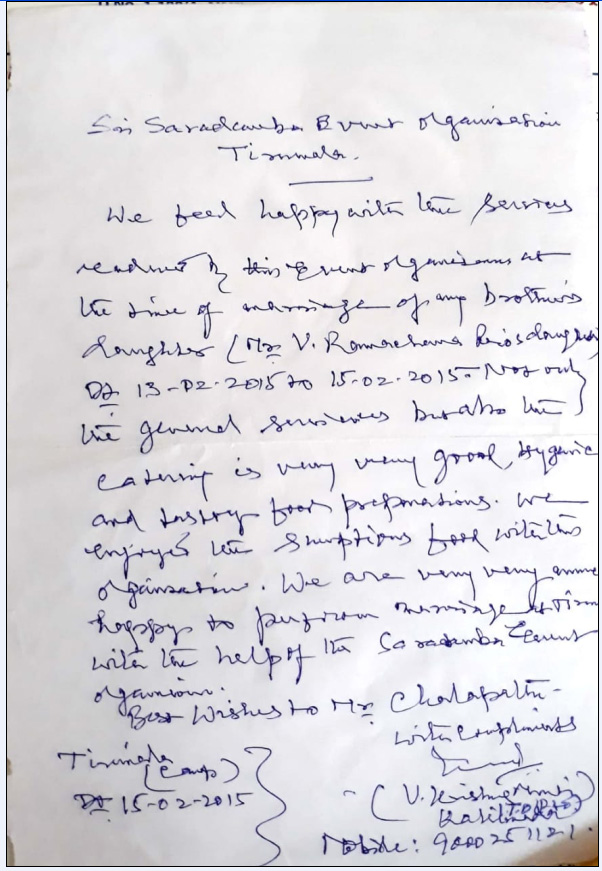 Sri Saradamba Event Organisation
Tirumala.
We feel happy with the services
rendered by this Event organisers at
the time of marriage of my brother's
daughter (Mr. V. Ramachandra Rao's daughter)
Dt 13-02-2015 to 15-02-2015. Not only
the general services but also the
catering is very very good, Hygenic
and tasty food preparations. We
enjoyed the sumptious food with this
organisation. We are very very
happy to perform marriage at
with the help of the Saradamba Event
organision.
Best Wishes to Mr. Chalapathi
with compliments
Tirumala
(Camp)
Dt 15-02-2015
(V. Krishna
Mobile: 9000251121.